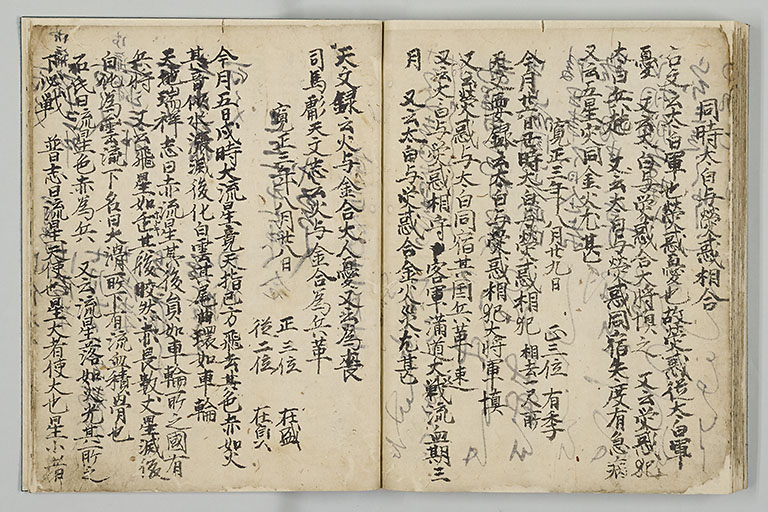 同時太白与熒惑相合
石文云太白軍也熒惑憂也故熒惑従太白軍
憂　又云太白与熒惑合大将惧之　又云熒惑犯
太白兵起　又云太白与熒惑同宿失度有急病
又云五星火同金火尤甚
寛正三年八月廿九日　正三位 有季
今月廿八日　時太白与熒惑相犯
天文要録云太白与熒惑相犯大将軍慎
又云熒惑与太白同宿其国兵革速
又云太白与熒惑相守　客軍満道大戦流血期三
月　又云太白与熒惑合金火災尤甚
天文録云火与金合大人憂又云為喪
司馬彪天文志云火与金合為兵革
寛正三年八月廿八日　正三位 在盛
従二位 在貞
今月五日戌時大流星竟天指巳方飛去其色赤如火
其音　水　滅後化白雲其尾曲環如車輪
天地瑞祥志曰赤流星其後負如車輪所之国有
兵将　又云飛星如　其後皎然赤長数丈星滅後
白化為雲流下名曰大滑所下有流血積骨也
石氏曰流星色赤為兵　又云流星落如火光其所之
下必戦　晋志曰流星天使也星大者使大也星小者